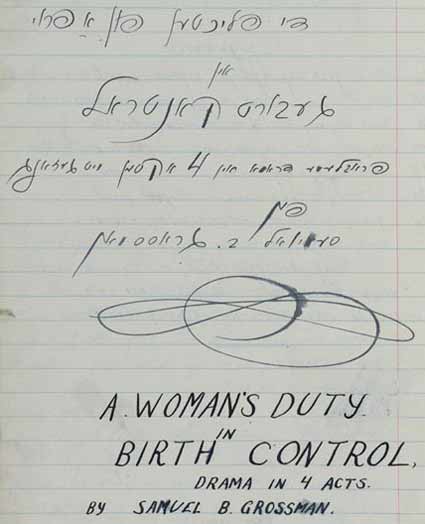 די פליכטען פון א פרוי
אין
געבורט קאנטראל
פראבלעם דראמא אין 4 אקטן מיט געזאנג
פון
סעמיועל ב. גראסמאן
A WOMAN'S DUTY.
IN
BIRTH CONTROL,
DRAMA IN 4 ACTS.
BY SAMUEL B. GROSSMAN.